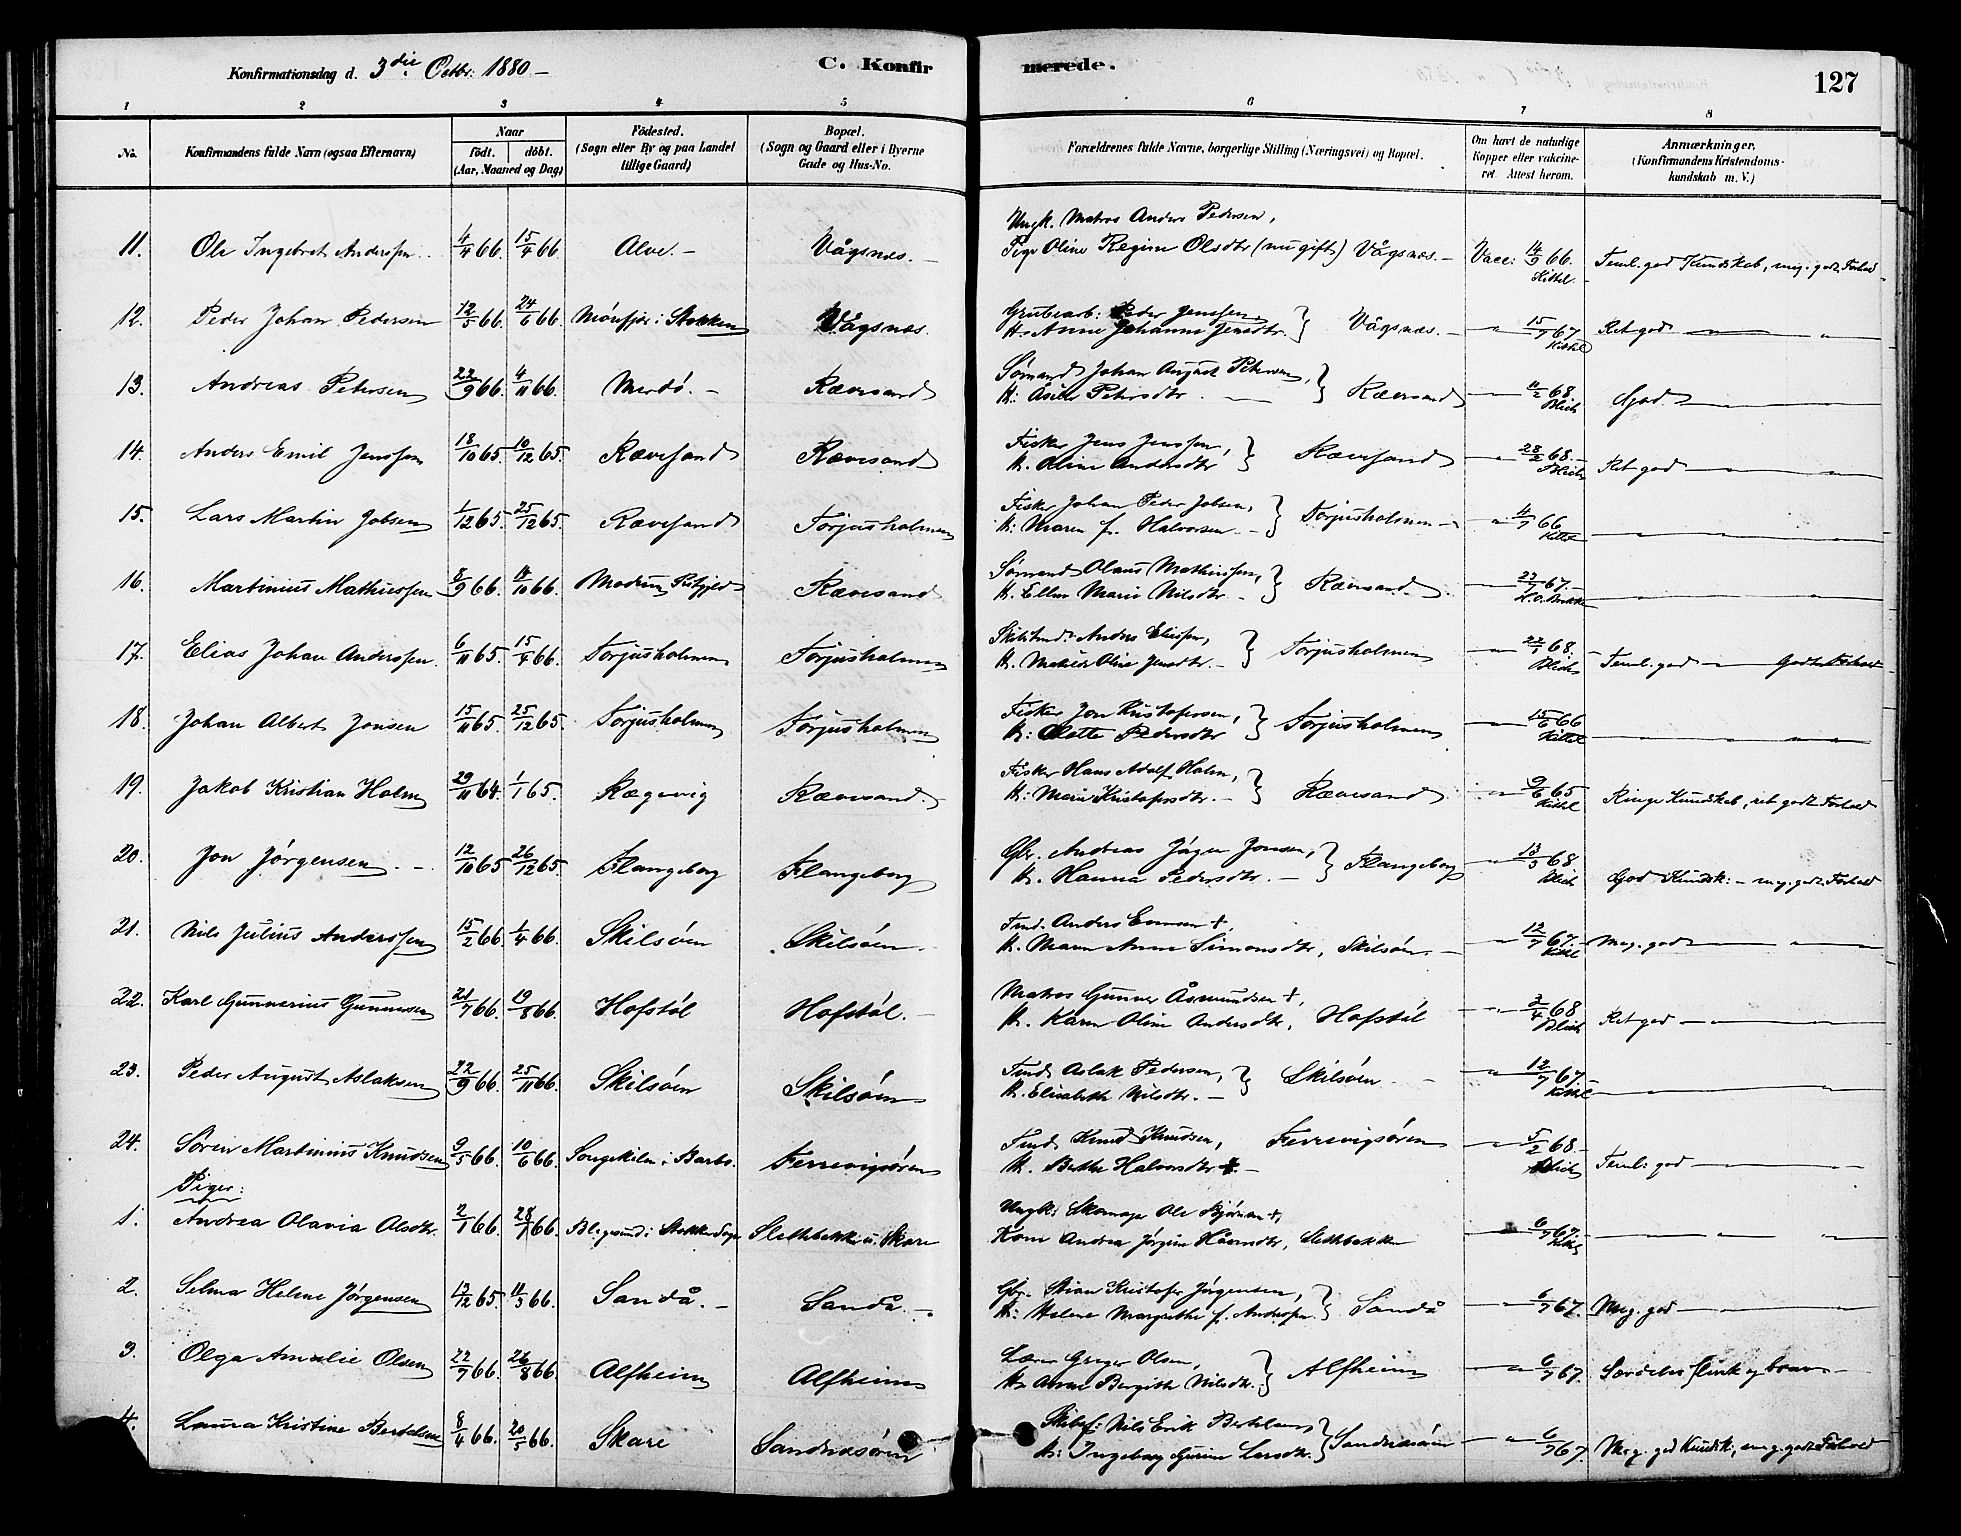 Konfirmationsdag d. 3die Octbr: 1880 –
C. Konfir
merede.
127
1 2 3 4 5 6 7 8
No.
Konfirmandens fulde Navn (ogsaa Efternavn)
Naar
födt. döbt.
(Aar, Maaned og Dag)
Födested.
(Sogn eller By og paa Landet
tillige Gaard)
Bopæl.
(Sogn og Gaard eller i Byerne
Gade og Hus-No.
Forældrenes fulde Navne, borgerlige Stilling (Næringsvei) og Bopæl.
Om havt de naturlige
Kopper eller vakcine-
ret. Attest herom.
Anmærkninger.
(Konfirmandens Kristendoms-
kundskab m. V.)
Ungk. Matros Anders Pedersen,
11. Ole Ingebret Anderssen 4/4 66. 15/4 66. Alve. – Vågsnæs. – Pige Oline Regine Olsdtr (nu gift) Vågsnæs. – Vacc: 14/9 66. Teml. god Kundskab, meg. godt Forhold
Kittel.
12. Peder Johan Pedersen 12/5 66. 24/6 66. i Stokken Vågsnæs. Grubearb: Peder Jenssen,
K. Anne Johanne Jensdtr. } Vågsnæs. – " 15/7 67 Ret god
Kittel
13. Andreas Petersen 22/9 66. 4/11 66. Merdö. – Rævesand Sømand Johan August Petersen,
K: Åsille Petersdtr. } Rævesand – " 11/2 68. God.
Blich
14. Anders Emil Jenssen 18/10 65. 10/12 65. Rævesand Rævesand Fisker Jens Jenssen,
K. Oline Andersdtr } Rævesand – " 28/2 68. Ret god
Blich
15. Lars Martin Jobsen 1/12 65. 25/12 65. Rævesand Torjusholmen Fisker Johan Peder Jobsen,
K: Maren f. Halvorsen } Torjusholmen – " 4/7 66
Kittel
16. Martinius Mathiessen 8/9 66. 14/10 66. Rævesand Sømand Olaus Mathiessen,
K. Ellen Marie Nilsdtr } Rævesand. 67.
17. Elias Johan Anderssen. 6/11 65. 15/4 66. Torjusholmen Torjusholmen Anders Eliessen,
Oline Jensdtr. – } Torjusholmen – " 22/1 68. Teml. god – " – Godt Forhold
Blich
18. Johan Albert Jonsen 15/11 65. 25/12 65. Torjusholmen Torjusholmen Fisker Jon Kristofersen,
K: Olette Pedersdtr } Torjusholmen – " 15/6 66
Kittel
19. Jakob Kristian Holm 29/11 64. 1/1 65. Rægevig Rævesand. Fisker Hans Adolf Holm,
K: Marie Kristofersdtr. – } Rævesand – " 9/6 65 Ringe Kundskab, ret godt Forhold
Kittel
20. Jon Jørgensen 12/10 65 26/12 65. Flangeborg Flangeborg Gbr. Andreas Jonsen,
K. Hanna Pedersdtr. – } Flangeborg – " 13/3 68 God Kundsk: – meg. godt Forhold
Blich
21. Nils Julius Anderssen 15/2 66. 1/4 66. Skilsöen Skilsöen. Tmd. Anders +,
K. Maren Anne Simonsdtr, Skilsöen. – " 12/7 67. Meg. god
Kittel
22. Karl Gunnerius Gunnersen 21/7 66. 19/8 66. Hofstöl Hofstöl. – Matros Gunner Åsmundsen +,
K. Karen Oline Andersdtr, Hofstöl – " 3/4 68 Ret god
Blich
23. Peder August Aslaksen 22/9 66. 25/11 66. Skilsöen Skilsöen Tmd. Aslak Pedersen,
K. Elisabeth Nilsdtr. – } Skilsöen. – " 12/7 67.
Kittel
24. Sören Martinius Knudsen 9/5 66. 10/6 66. Songekilen i Barbo. Ferrevigsören Tmd. Knud Knudsen, Ferrevigsören – " 5/2 68. – Teml. god
K. Halvorsdtr + Blich
Piger:
1. Andrea Olavia Olsdtr. 2/1 66. 28/1 66. Slethbakken u. Skare Ungk: Skomager Ole Bjørnsen +,
Kone Andrea Jørgine Håvorsdtr, Slethbakken – " 6/7 67.
Kittel
2. Selma Helene Jørgensen 13/12 65. 11/3 66. Sandå. – Sandå. – Gbr. Stian Kristofer Jørgensen,
K: Helene Margrethe f. Anderssen. } Sandå – " 6/7 67. Meg. god
3. Olga Amalie Olsen 22/7 66. 26/8 66. Alfheim Alfheim Lærer Greger Olsen,
K. Anne Bergithe Nilsdtr. } Alfheim – " 6/7 67. Særdeles flink og brav –
4. Laura Kristine Bertelsen 8/4 66. 20/5 66. Skare Sandvigsören Skibsf: Nils Erik Bertelsen,
K: Ingeborg Gurine Larsdtr. } Sandvigsören – " 6/7 67. Meg. god Kundsk:, meg. godt Forhold